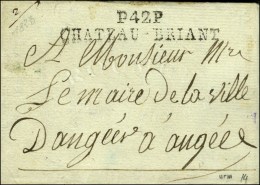 P42P
CHATEAU-BRIANT
A Monsieur Mr
Le maire de la ville
Dangéér a angéé